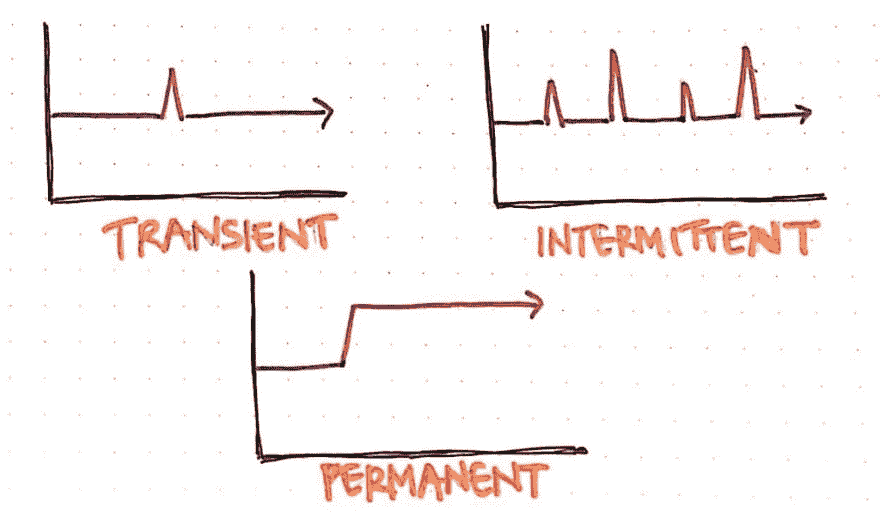 TRANSIENT
INTERMITTENT
PERMANENT